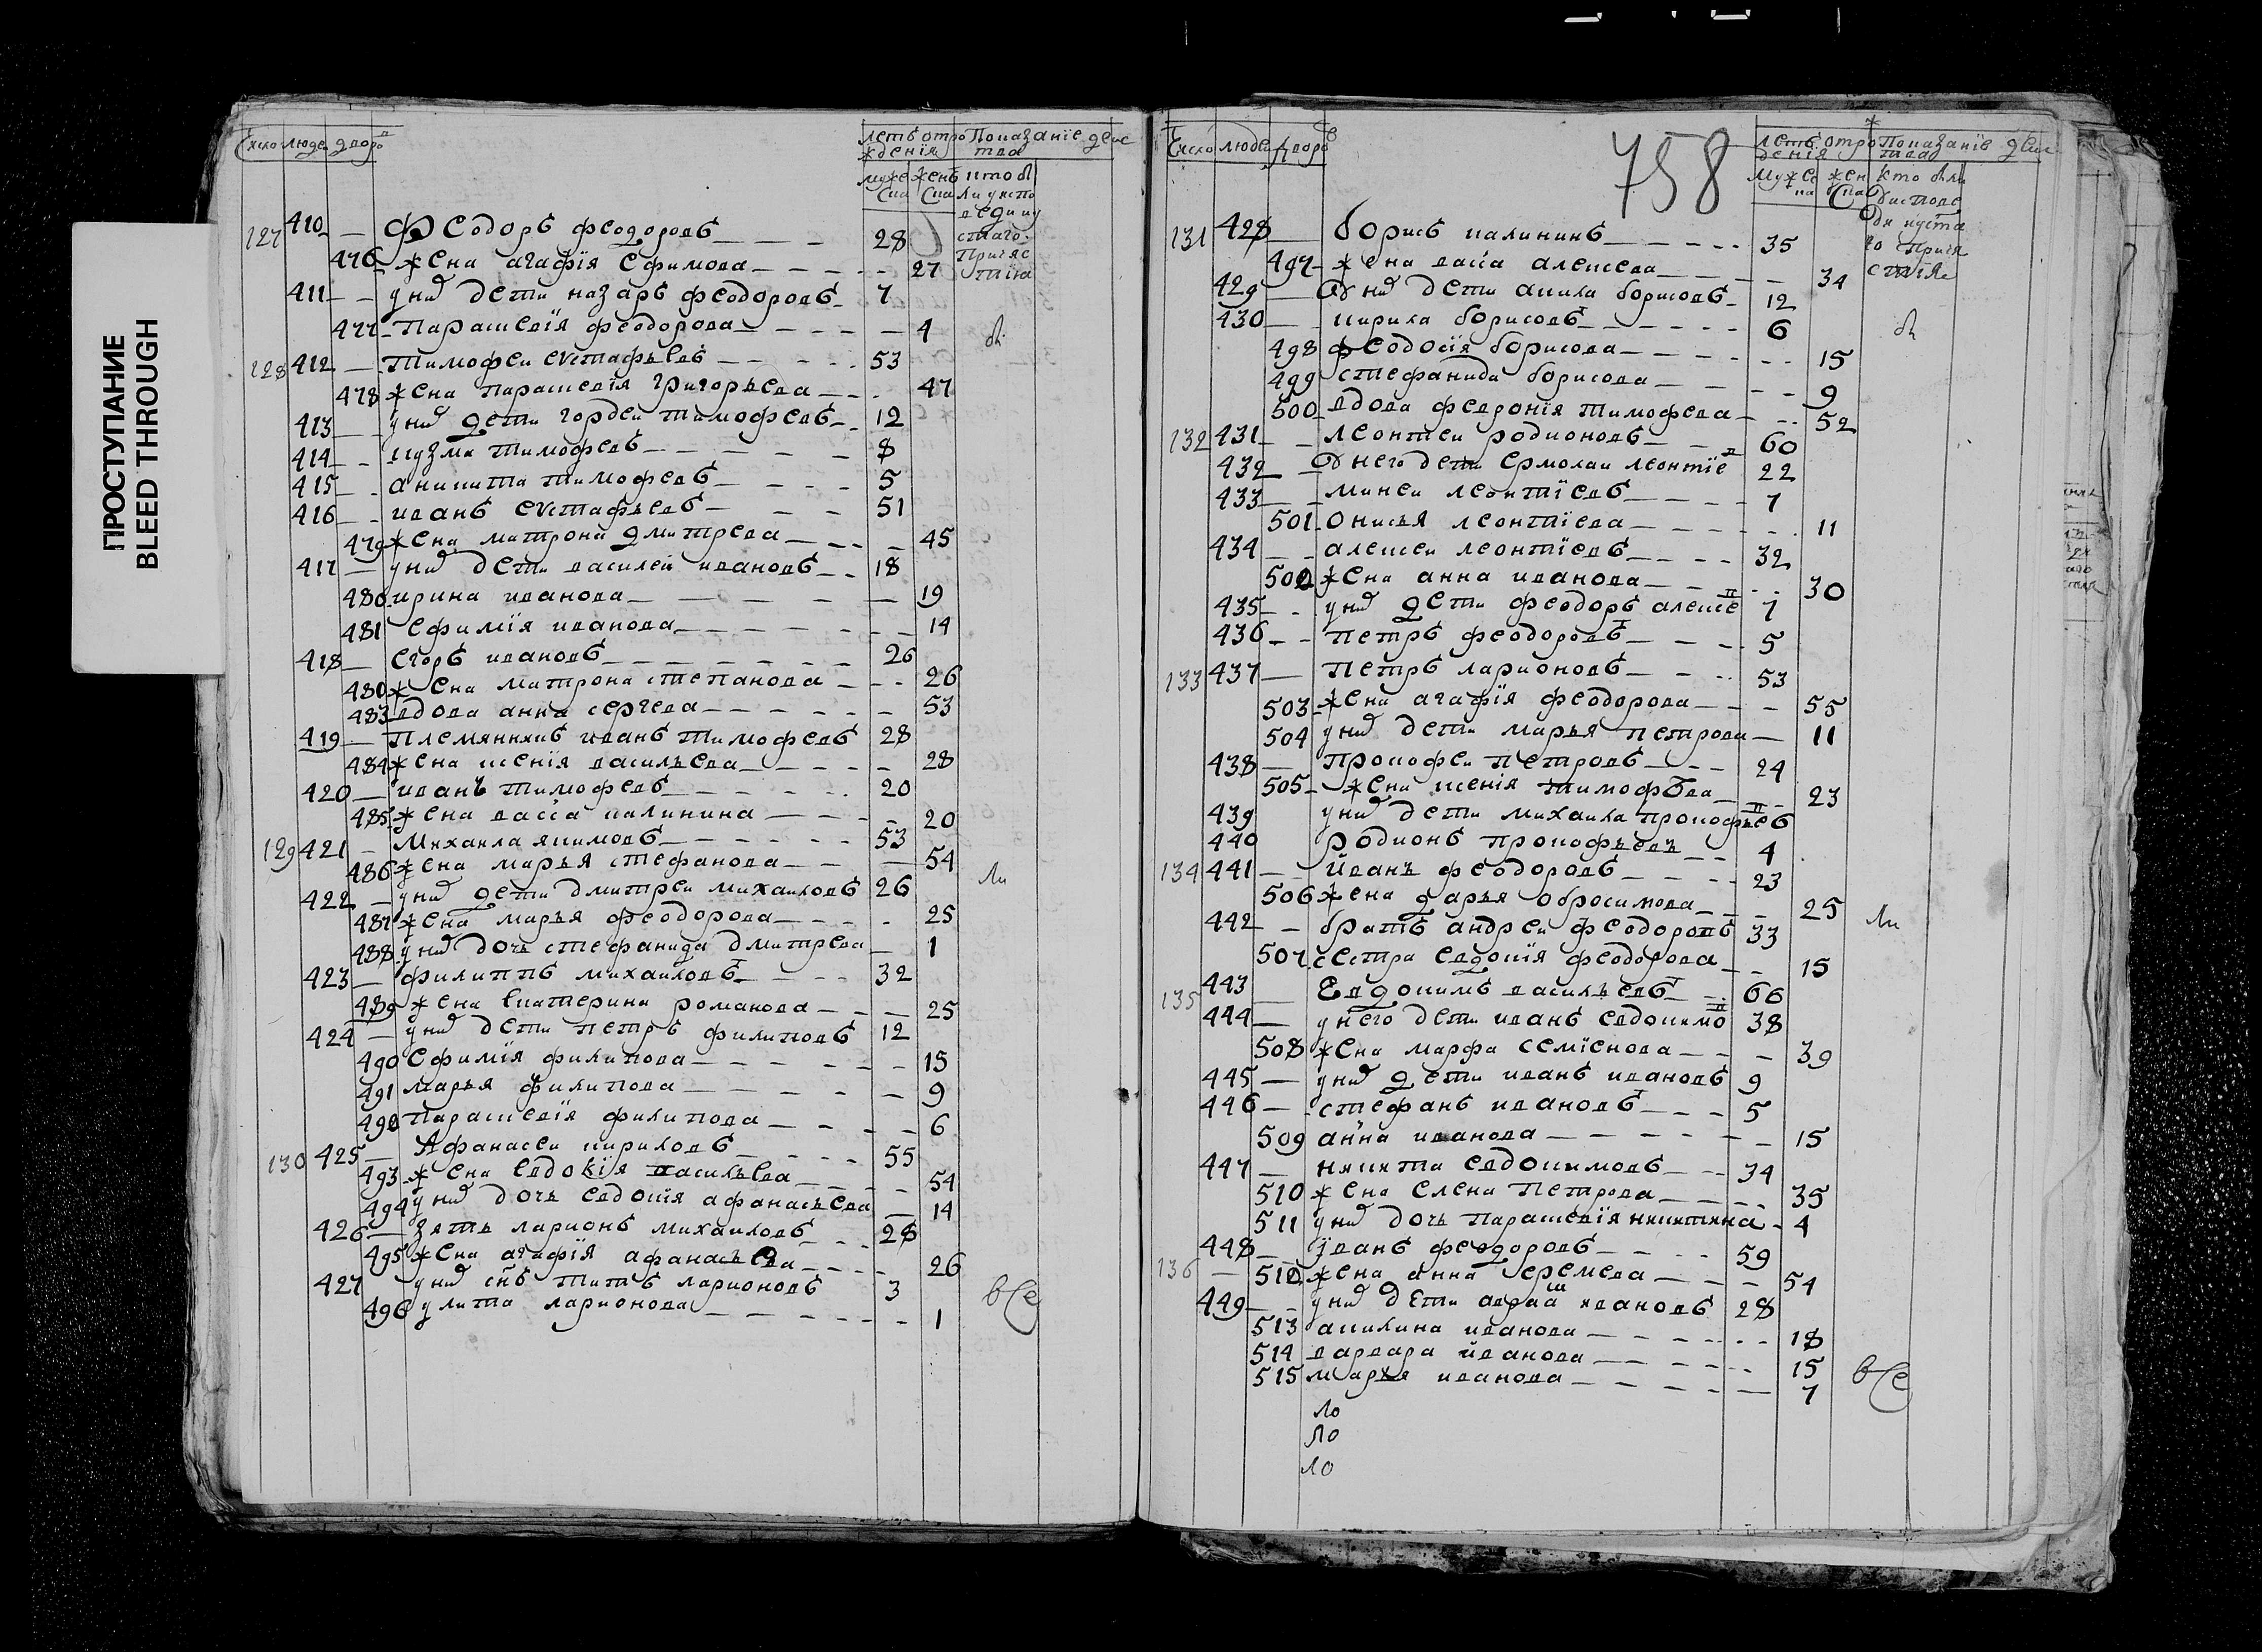 ПРОСТУПАНИЕ
BLEED THROUGH
число людеи дворовъ
летъ отро Показанїе деис
ждения тва
муже женъ кто бы
ска ска ли у испо
веди и у
стаго
Причяс
тїя
127 410 Феодоръ феодоровъ 28
476 жена агафїя ефимова 27
411 у них дети назаръ феодоровъ 7
477 Параскевїя феодорова 4 бы
128 412 Тимофеи евстафьевъ 53
478 жена параскевїя григорьева 47
413 у них дети гордеи тимофеевъ 12
414 кузма тимофеевъ 8
415 аникита тимофеевъ 5
416 иванъ евстафьевъ 51
479 жена матрона дмитрева 45
417 у них дети василеи ивановъ 18
480 ирина иванова 19
481 ефимїя иванова 14
418 егоръ ивановъ 26
480 жена матрона степанова 26
483 вдова анна сергеева 53
419 Племянникъ иванъ тимофеевъ 28
484 жена ксенїя васильева 28
420 иванъ тимофеевъ 20
485 жена васса калинина 20
129 421 Михаила якимовъ 53
486 жена марья стефанова 54
422 у них дети дмитреи михаиловъ 26 ли
487 жена марья феодорова 25
488 у них дочь стефанида дмитрева 1
423 филиппъ михаиловъ 32
489 жена екатерина романова 25
424 у них дети петръ филиповъ 12
490 ефимїя филипова 15
491 марья филипова 9
492 Параскевїя филипова 6
130 425 Афанасеи кириловъ 55
493 жена евдокїя васильева 54
494 у них дочь евдокїя афанасьева 14
426 зять ларионъ михаиловъ 28
495 жена агафїя афанасьева 26
427 у них снъ титъ ларионовъ 3
496 улита ларионова 1 все
758
число людеи дворовъ
летъ отро Показанїе деис
дения тва
мужес жен кто были
ка ска
131 428 борисъ калининъ 35
497 жена васса алексева 34
429 У них дети акила борисовъ 12
430 кирила борисовъ 6 бы
498 феодосїя борисова 15
499 стефанида борисова 9
500 вдова феврония тимофева 52
132 431 леонтеи родионовъ 60
432 У него дети ермолаи леонтїе 22
433 микеи леонтїевъ 7
501 Онисья леонтїева 11
434 алексеи леонтїевъ 32
502 жена анна иванова 30
435 у них дети феодоръ алексе 7
436 петръ феодоровъ 5
133 437 Петръ ларионовъ 53
503 жена агафїя феодорова 55
504 у них дети марья петрова 11
438 Прокофеи петровъ 24
505 жена ксенїя тимофѣва 23
439 у них дети михаила прокофьевъ
440 Родионъ прокофьевъ 4
134 441 Иванъ феодоровъ 23
506 жена дарья обросимова 25
442 братъ андреи феодоровъ 33 ли
507 сестра евдокїя феодорова 15
135 443 Евдокимъ васильевъ 66
444 у него дети иванъ евдокимо 38
508 жена марфа семїенова 39
445 у них дети иванъ ивановъ 9
446 стефанъ ивановъ 5
509 анна иванова 15
447 никита евдокимовъ 34
510 жена елена петрова 35
511 у них дочь параскевїя никитина 4
136 448 їванъ феодоровъ 59
512 жена анна еремеева 54
449 у них дети ивановъ 28
513 акилина иванова 18
514 варвара иванова 15
515 марья иванова 7 все
ло
ло
ло